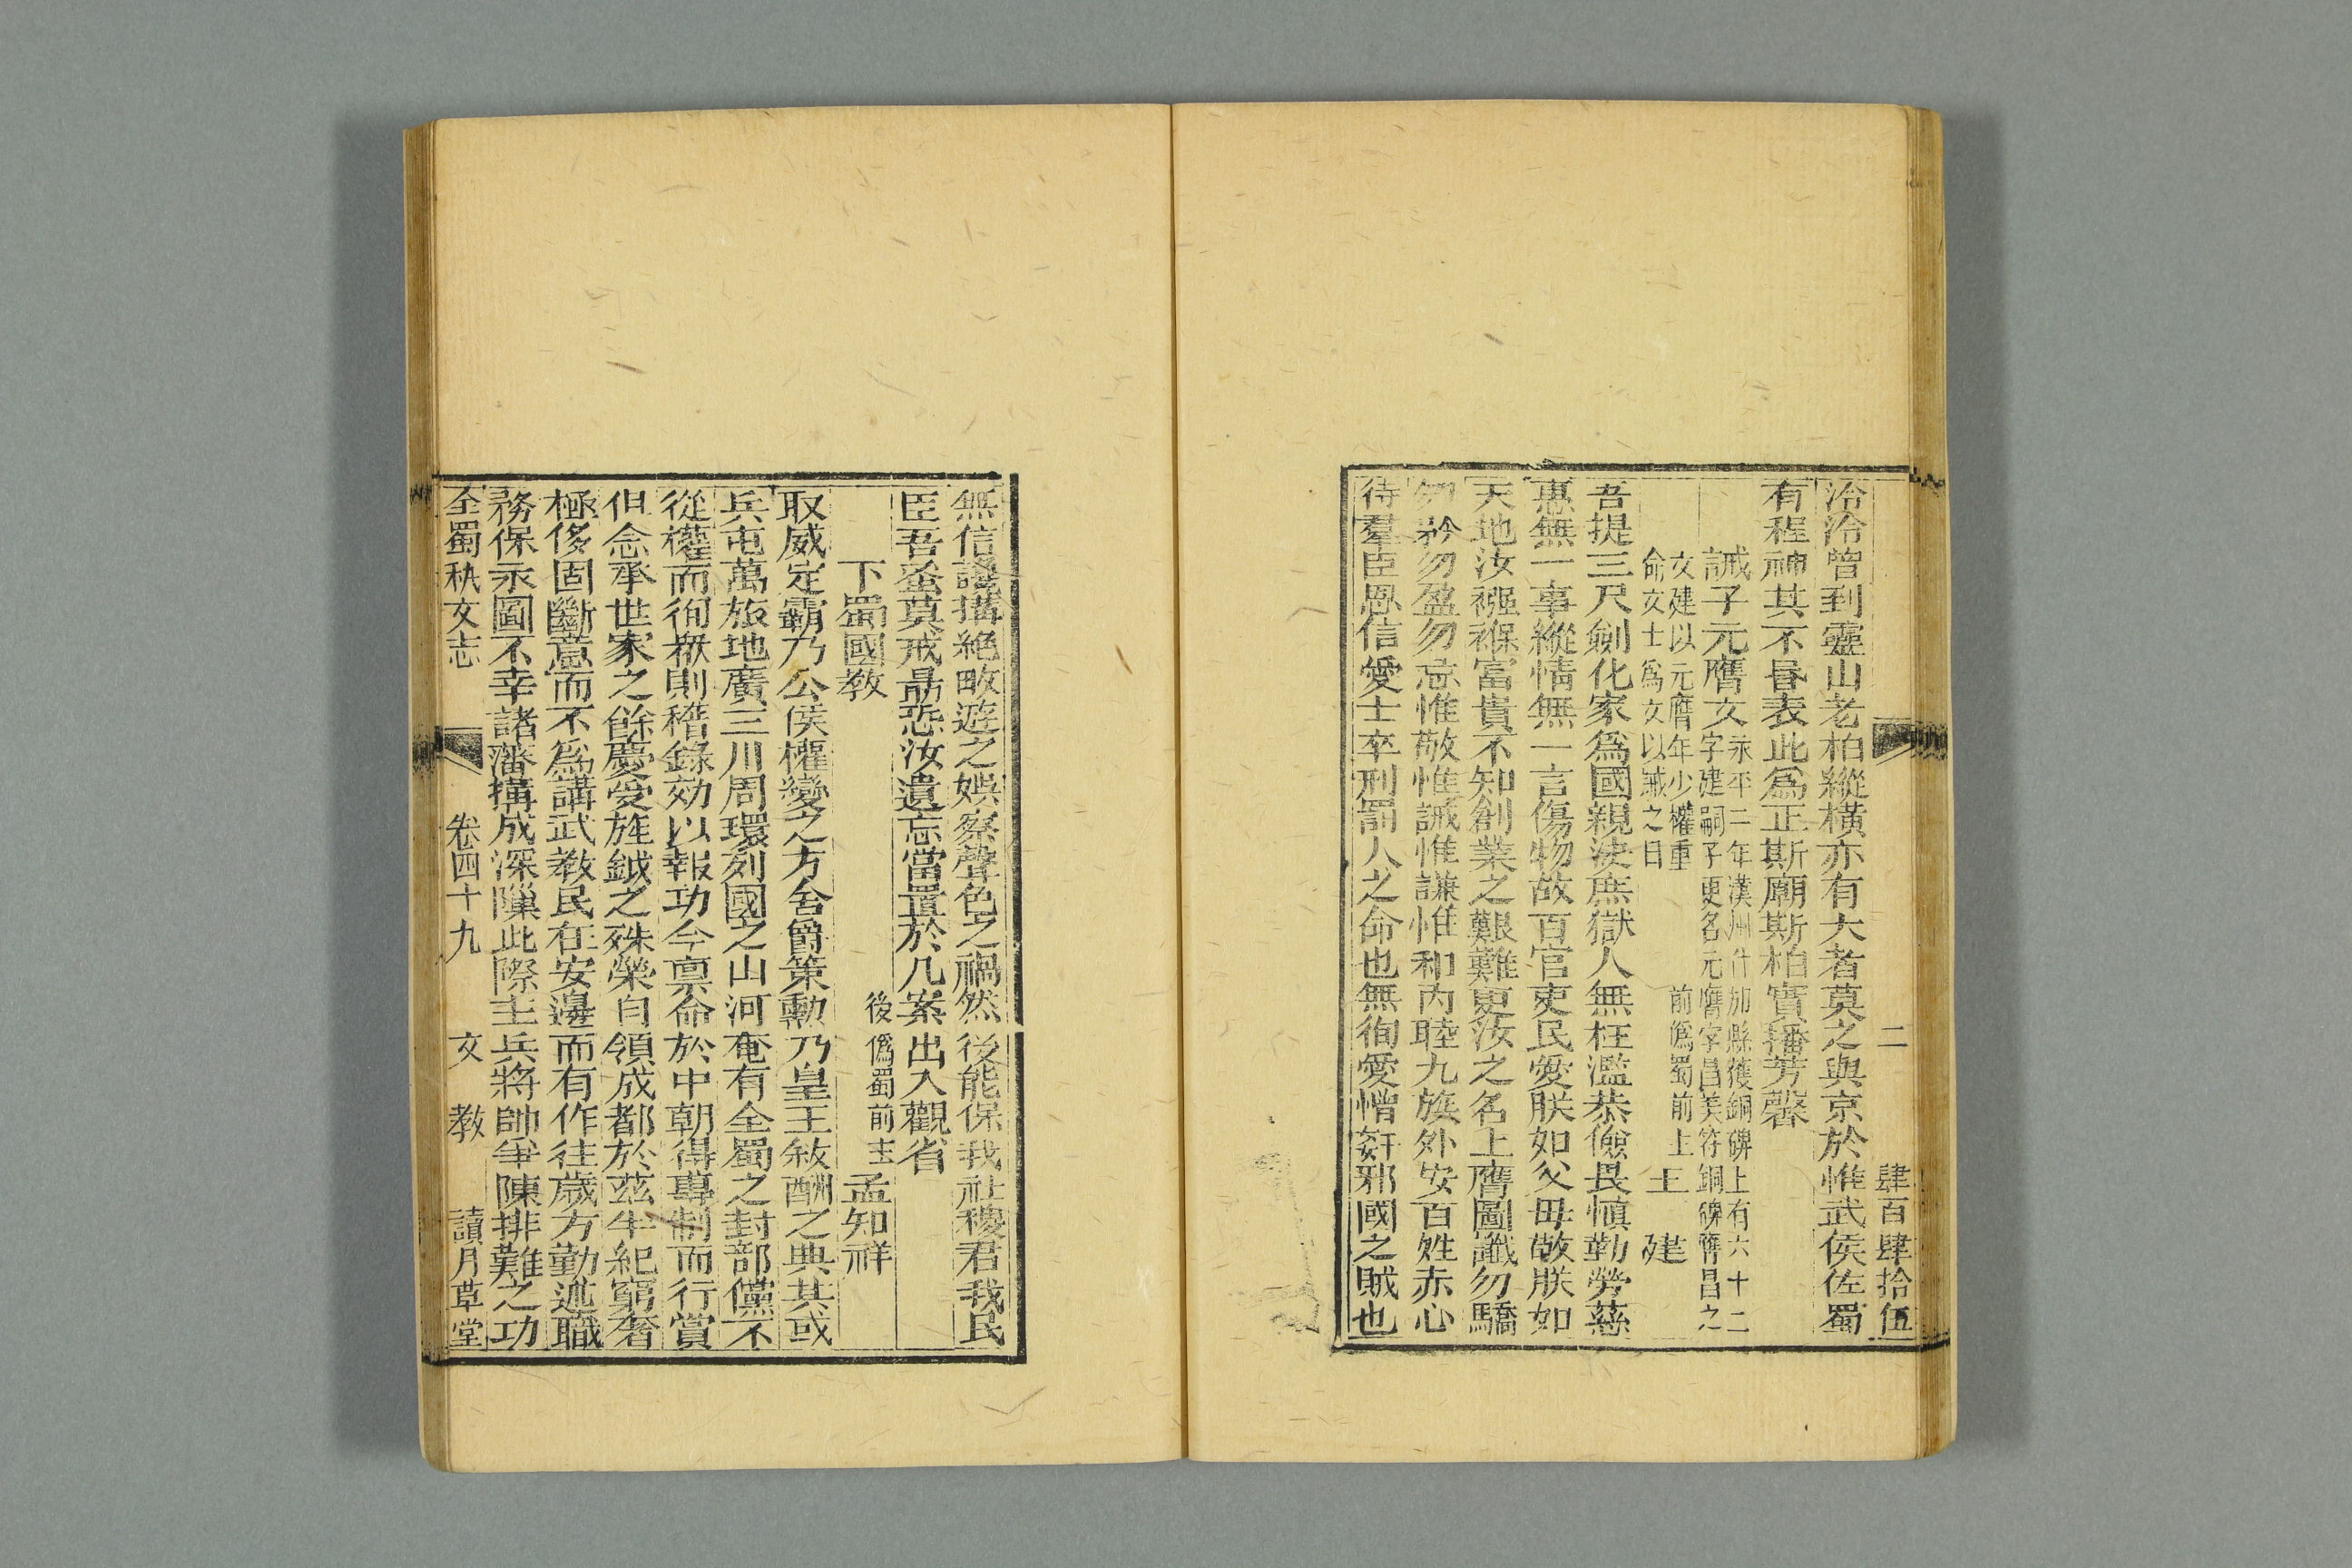 二 肆百肆拾伍
冷冷曾到靈山老柏縱橫亦有大者莫之與京於惟武侯佐蜀
有程神其不昬表此為正斯廟斯柏實播芳馨
誡子元膺文
永平二年漢州什邡縣獲銅碑上有六十二
字建嗣子更名元膺字昌美符銅碑膺昌之
文建以元膺年少權重
命文士為文以誡之曰
前僞蜀前主王建
吾提三尺劍化家為國親決庶獄人無枉濫恭儉畏慎勤勞慈
惠無一事縱情無一言傷物故百官吏民愛朕如父毋敬朕如
天地汝襁褓富貴不知創業之艱難更汝之名上膺圖讖勿驕
勿矜勿盈勿忘惟敬惟誡惟謙惟和內睦九族外安百姓赤心
待羣臣恩信愛士卒刑罰人之命也無徇愛憎奸邪國之賊也
無信讒搆絕畋遊之娛察聲色之禍然後能保我社稷君我民
臣吾蚤莫戒勗恐汝遺忘當置於几案出入觀省
下蜀國敎
後僞蜀前主孟知祥
取威定霸乃公侯權變之方舍爵策勳乃皇王敘酬之典其或
兵屯萬旅地廣三川周環列國之山河奄有全蜀之封部儻不
從權而徇衆則稽錄効以報功今禀命於中朝得專制而行賞
但念承世家之餘慶受旌鉞之殊榮自領成都於茲半紀窮奢
極侈固斷意而不為講武敎民在安邊而有作往歲方勤述職
務保永圖不幸諸藩搆成深隟此際主兵將帥爭陳排難之功
全蜀秇文志 卷四十九 文敎 讀月草堂